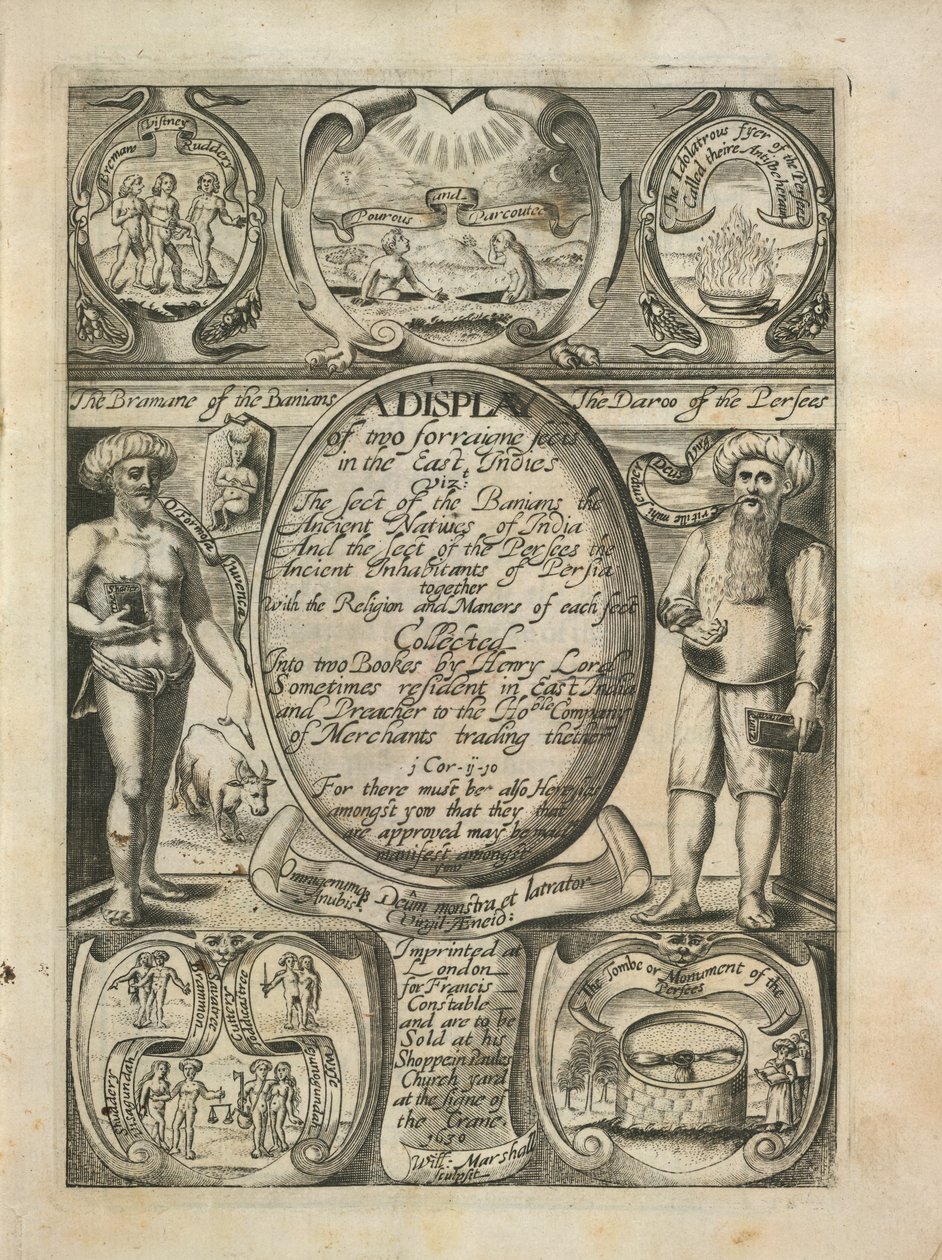 Bremaw Vistney Rudderi
Pourous and Parcoutee
The Idolatrous fyer of the Persees
Called theire Antisbeheraun
The Bramane of the Banians
The Daroo of the Persees
A DISPLAY
of two forraigne sects
in the East Indies
vizt:
The sect of the Banians the
Ancient Natives of India
And the sect of the Persees the
Ancient Inhabitants of Persia
together
with the Religion and Maners of each sect
Collected
Into two Bookes by Henry Lord
Sometimes resident in East India
and Preacher to the Hoble Company
of Merchants trading thether
j Cor-ij-jo
For there must be also Heresies
amongst yow that they that
are approved may be made
manifest amongst
yow
O Formosa Juvenca
Shaster
erit ille mihi semper Deus
Omnigenumq
Deûm monstra et latrator
Anubis
Virgil Æneid:
Brammon
Savatree
Cuttery
Toddicastree
Shuddery
Visagundah
Wyse
Jejunogundah
Imprinted at
London
for Francis
Constable
and are to be
Sold at his
Shoppe in Paules
Church yard
at the signe of
the Crane
1630
Will: Marshall
sculpsit
The Tombe or Monument of the
Persees